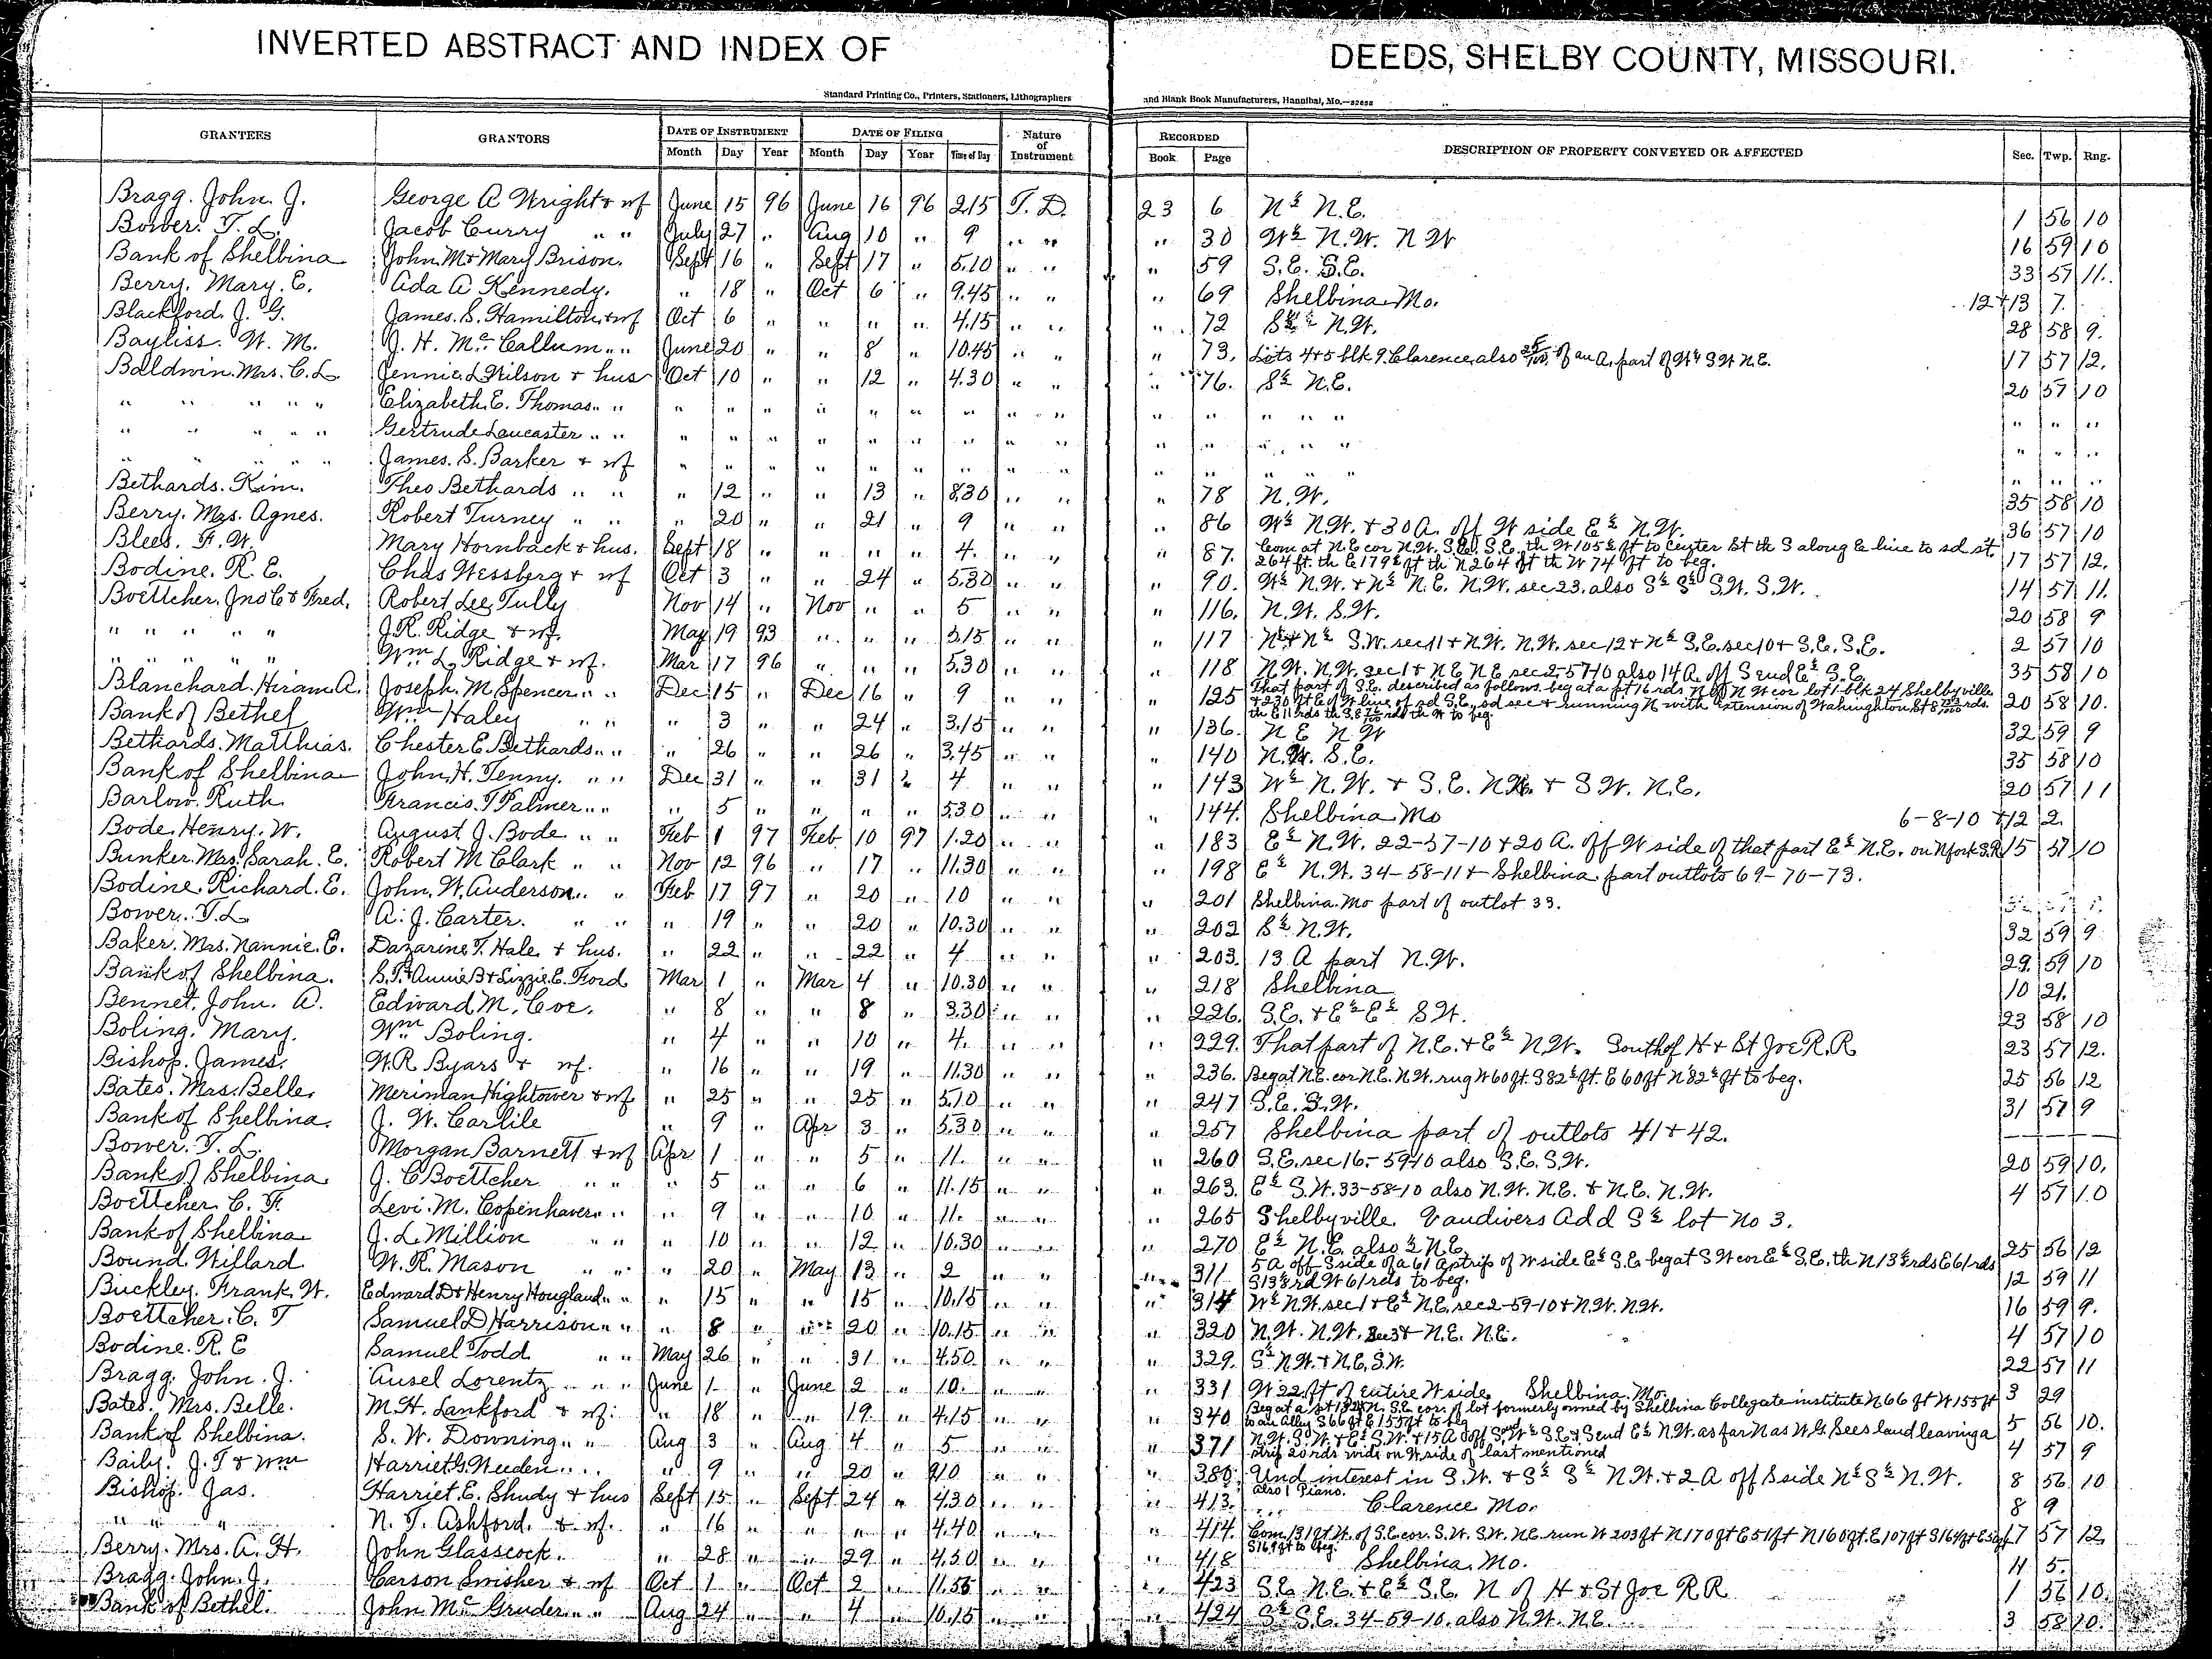 INVERTED ABSTRACT AND INDEX OF DEEDS, SHELBY COUNTY, MISSOURI.
Standard Printing Co., Printers, Stationers, Lithographers and Blank Book Manufacturers, Hannibal, Mo.—52858
GRANTEES GRANTORS DATE OF INSTRUMENT DATE OF FILING Nature of Instrument RECORDED DESCRIPTION OF PROPERTY CONVEYED OR AFFECTED Sec. Twp. Rng.
Month Day Year Month Day Year Time of Day Book Page
Bragg. John. J. George A Wright & wf June 15 96 June 16 96 2.15 T. D. 23 6 N½ N.E. 1 56 10
Bower. T. L. Jacob Curry " " July 27 " Aug 10 " 9 " " " 30 W½ N.W. N W 16 59 10
Bank of Shelbina John. M & Mary Brison. Sept 16 " Sept 17 " 5.10 " " " 59 S.E. S.E. 33 57 11.
Berry. Mary. E. Ada A Kennedy. " 18 " Oct 6 " 9.45 " " " 69 Shelbina Mo. 12+13 7.
Blackford. J. G. James. S. Hamilton & wf Oct 6 " " " " 4.15 " " " 72 N.W. 28 58 9.
Bayliss. W. M. J. H. Mc Callum " " June 20 " " 8 " 10.45 " " " 73. Lots 4+5 blk 9. Clarence, also of an A. part of W½ S.W N.E. 17 57 12.
Baldwin. Mrs. C. L Jennie. L Wilson & hus Oct 10 " " 12 " 4.30 " " " 76. S½ N.E. 20 57 10
" " " " " Elizabeth. E. Thomas " " " " " " " " " " " " " " " " " " "
" " " " " Gertrude Laucaster " " " " " " " " " " " " " " " " " " "
" " " " " James. S. Barker & wf " " " " " " " " " " " " " " " " "
Bethards. Kim. Theo Bethards " " " 12 " " 13 " 8.30 " " " 78 N.W. 35 58 10
Berry. Mrs. Agnes. Robert Turney " " " 20 " " 21 " 9 " " " 86 W½ N.W. + 30 A. off W side E½ N.W. 36 57 10
Blees. F. W. Mary Hornback & hus. Sept 18 " " " " 4. " " " 87. Com at N E cor N.W. S.E. S.E. th W 105½ ft to Center St th S along E line to sd st. 17 57 12.
264 ft. th E 179½ ft th N 264 ft th W 74 ft to beg.
Bodine. R. E. Chas Wessberg & wf Oct 3 " " 24 " 5.30 " " " 90. W½ N.W. + N½ N.E. N.W. sec 23. also S½ S½ S.W. S.W. 14 57 11.
Boettcher, Jno C & Fred. Robert Lee Tully Nov 14 " Nov " " 5 " " " 116. N.W. S.W. 20 58 9
" " " " " J. R. Ridge & wf. May 19 93 " " " 5.15 " " " 117 S.W. sec 11 + N.W. N.W. sec 12 + N½ S.E. sec 10 + S.E. S.E. 2 57 10
" " " " " Wm L. Ridge & wf. Mar 17 96 " " " 5.30 " " " 118 N.W. N.W. sec 1 + N E N E sec 2-57-10 also 14 A. off S end E½ S.E. 35 58 10
Blanchard. Hiram. A. Joseph. M Spencer " " Dec 15 " Dec 16 " 9 " " " 125 That part of S.E. described as follows. beg at a pt 16 rds. N of N W cor lot 1 blk 24 Shelbyville 20 58 10.
+ 230 ft E of W line of sd S.E. sd sec + running N with extension of Wahington St rds.
th E 11 rds th S rds th W to beg.
Bank of Bethel Wm Haley " " " 3 " " 24 " 3.15 " " " 136. N E N W 32 59 9
Bethards. Matthias. Chester E Bethards " " " 26 " " 26 " 3.45 " " " 140 N.W. S.E. 35 58 10
Bank of Shelbina John. H. Tenny. " " Dec 31 " " 31 " 4 " " " 143 W½ N.W. + S.E. N.W. + S W. N.E. 20 57 11
Barlow. Ruth Francis. T Palmer " " " 5 " " " " 5.30 " " " 144. Shelbina Mo 6-8-10 +12 2.
Bode. Henry. W. August J. Bode " " Feb 1 97 Feb 10 97 1.20 " " " 183 E½ N.W. 22-57-10 + 20 A. off W side of that part E½ N.E. on N fork S.R 15 57 10
Bunker. Mrs. Sarah. E. Robert M Clark " " Nov 12 96 " 17 " 11.30 " " " 198 E½ N.W. 34-58-11 + Shelbina part outlots 69-70-73.
Bodine. Richard. E. John. W. Anderson " " Feb 17 97 " 20 " 10 " " " 201 Shelbina. Mo part of outlot 33.
Bower. T. L A. J. Carter. " " " 19 " " 20 " 10.30 " " " 202 S½ N.W. 32 59 9
Baker. Mrs. Nannie. E. Dazarine. T. Hale & hus. " 22 " " 22 " 4 " " " 203. 13 A part N.W. 29. 59 10
Bank of Shelbina. S. P. Annie B & Lizzie. E. Ford Mar 1 " Mar 4 " 10.30 " " " 218 Shelbina 10 21.
Bennet. John. A. Edward M. Coe. " 8 " " 8 " 3.30 " " " 226. S.E. + E½ E½ S.W. 23 58 10
Boling. Mary. Wm Boling. " 4 " " 10 " 4. " " " 229. That part of N.E. + E½ N W. South of H + St Joe R.R 23 57 12.
Bishop. James. W. R Byars & wf. " 16 " " 19 " 11.30 " " " 236. Beg at N.E. cor N.E. N.W. rug W 60 ft. S 82½ ft. E 60 ft N 82½ ft to beg. 25 56 12
Bates. Mrs. Belle. Meriman Hightower & wf " 25 " " 25 " 5.10 " " " 247 S.E. S.W. 31 57 9
Bank of Shelbina. J. W. Carlile " 9 " Apr 3 " 5.30 " " " 257 Shelbina part of outlots 41 + 42.
Bower. T. L. Morgan Barnett & wf Apr 1 " " 5 " 11. " " " 260 S.E. sec 16-59-10 also S.E. S.W. 20 59 10.
Bank of Shelbina J. C Boettcher " " " 5 " " 6 " 11.15 " " " 263. E½ S.W. 33-58-10 also N.W. N.E. + N.E. N.W. 4 57 10
Boettcher C. F. Levi. M. Copenhaver " " " 9 " " 10 " 11. " " " 265 Shelbyville. Vandivers Add S½ lot No 3.
Bank of Shelbina J. L. Million " " " 10 " " 12 " 10.30 " " " 270 E½ N.E. also ½ N.E. 25 56 12
Bound Willard W. R. Mason " " " 20 " May 13 " 2 " " " 311 5 A off S side of a 61 A strip of W side E½ S.E. beg at S W cor E½ S.E. th N 13½ rds E 61 rds 12 59 11
S 13½ rd W 61 rds to beg.
Buckley. Frank. W. Edward D & Henry Hougland " " " 15 " " 15 " 10.15 " " " 314 W½ N.W. sec 1 + E½ N.E. sec 2-59-10 + N.W. N.W. 16 59 9.
Boettcher. C. T Samuel D Harrison " " " 8 " " 20 " 10.15 " " " 320 N.W. N.W. Sec 3 + N.E. N.E. 4 57 10
Bodine. R. E Samuel Todd " " May 26 " " 31 " 4.50 " " " 329. S½ N.W. + N.E. S.W. 22 57 11
Bragg. John. J. Ausel Lorentz " " June 1 " June 2 " 10. " " " 331 W 22 ft of entire W side. Shelbina. Mo. 3 29
Bates. Mrs. Belle. M. H. Lankford & wf. " 18 " " 19 " 4.15 " " " 340 Beg at a pt N. S.E. cor. of lot formerly owned by Shelbina Collegate institute N 66 ft W 155 ft 5 56 10.
to an Alley S 66 ft E 155 ft to beg
Bank of Shelbina. S. W. Downing " " Aug 3 " Aug 4 " 5 " " " 371 N.W. S.W. + E½ S.W. + 15 A off S end W½ S.E. + S end E½ N.W. as far N as W G Sees land leaving a 4 57 9
strip 20 rds wide on W side of last mentioned
Baily. J. T & Wm Harriet G. Weeden " " " 9 " " 20 " 9.10 " " " 380. Und interest in S.W. + S½ S½ N.W. + 2 A off S side N½ S½ N.W. 8 56 10
also 1 Piano.
Bishop. Jas. Harriet. E. Shudy & hus Sept 15 " Sept 24 " 4.30 " " " 413. Clarence Mo. 8 9
" " " N. T. Ashford. & wf. " 16 " " " " 4.40 " " " 414. Com. 131 ft W. of S.E. cor. S.W. S.W. N.E. run W 203 ft N 170 ft E 51 ft N 160 ft. E 107 ft S 164 ft E 50 ft 7 57 12.
S 169 ft to beg.
Berry. Mrs. A. H. John Glasscock. " 28 " " 29 " 4.50 " " " 418 Shelbina. Mo. 11 5.
Bragg. John. J. Carson Swisher & wf Oct 1 " Oct 2 " 11.55 " " " 423 S.E. N.E. + E½ S.E. N of H + St Joe R R 1 56 10.
Bank of Bethel. John Mc Gruder " " Aug 24 " " 4 " 10.15 " " " 424 S½ S.E. 34-59-10. also N.W. N.E. 3 58 10.